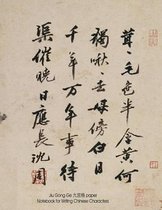 茸々毛色半含黄何
獨啾々去母傍白日
千年万年事待
渠催曉日應長 沈周
Jiu Gong Ge 九宫格 paper
Notebook for Writing Chinese Characters